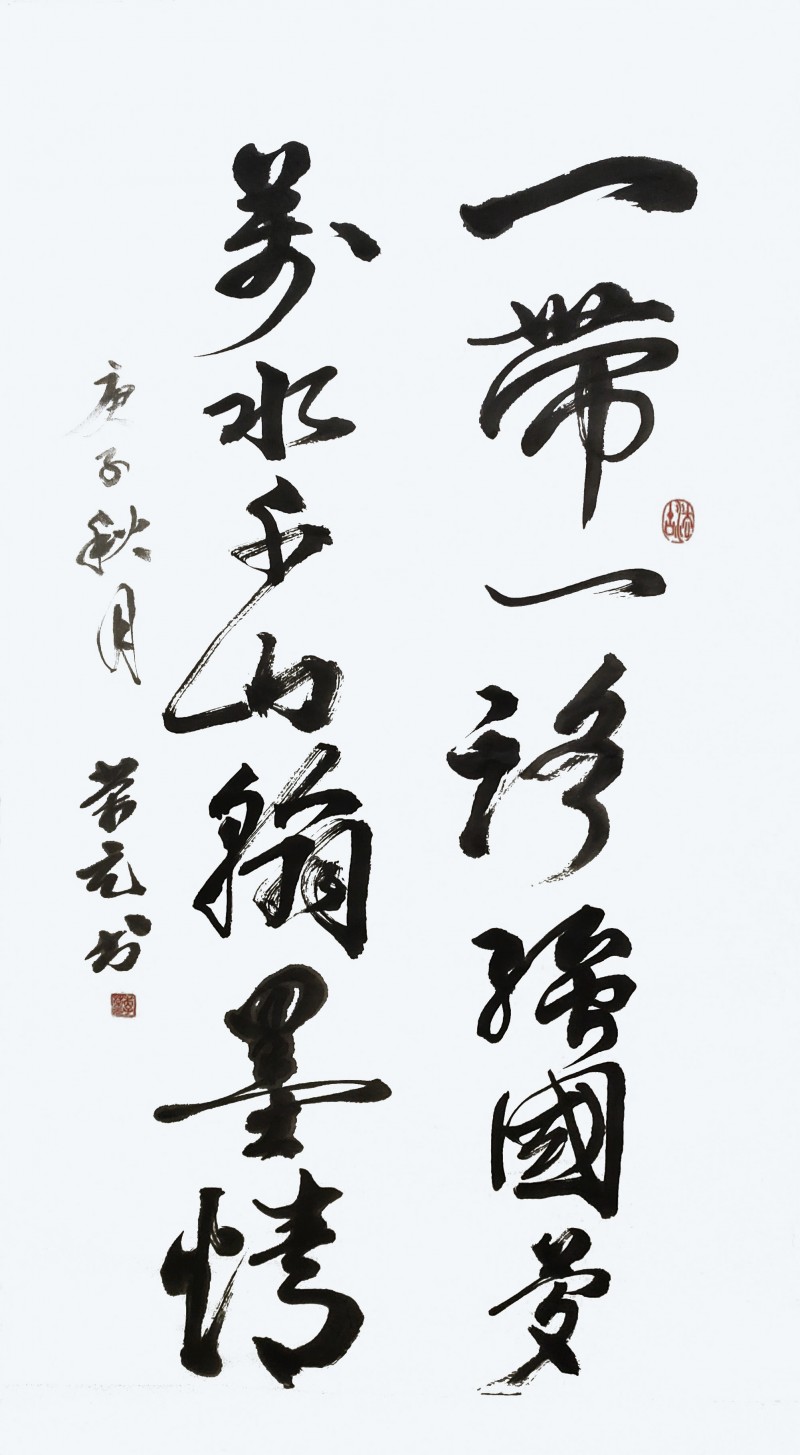 一帶一路強國夢
萬水千山翰墨情
庚子秋月 榮元书